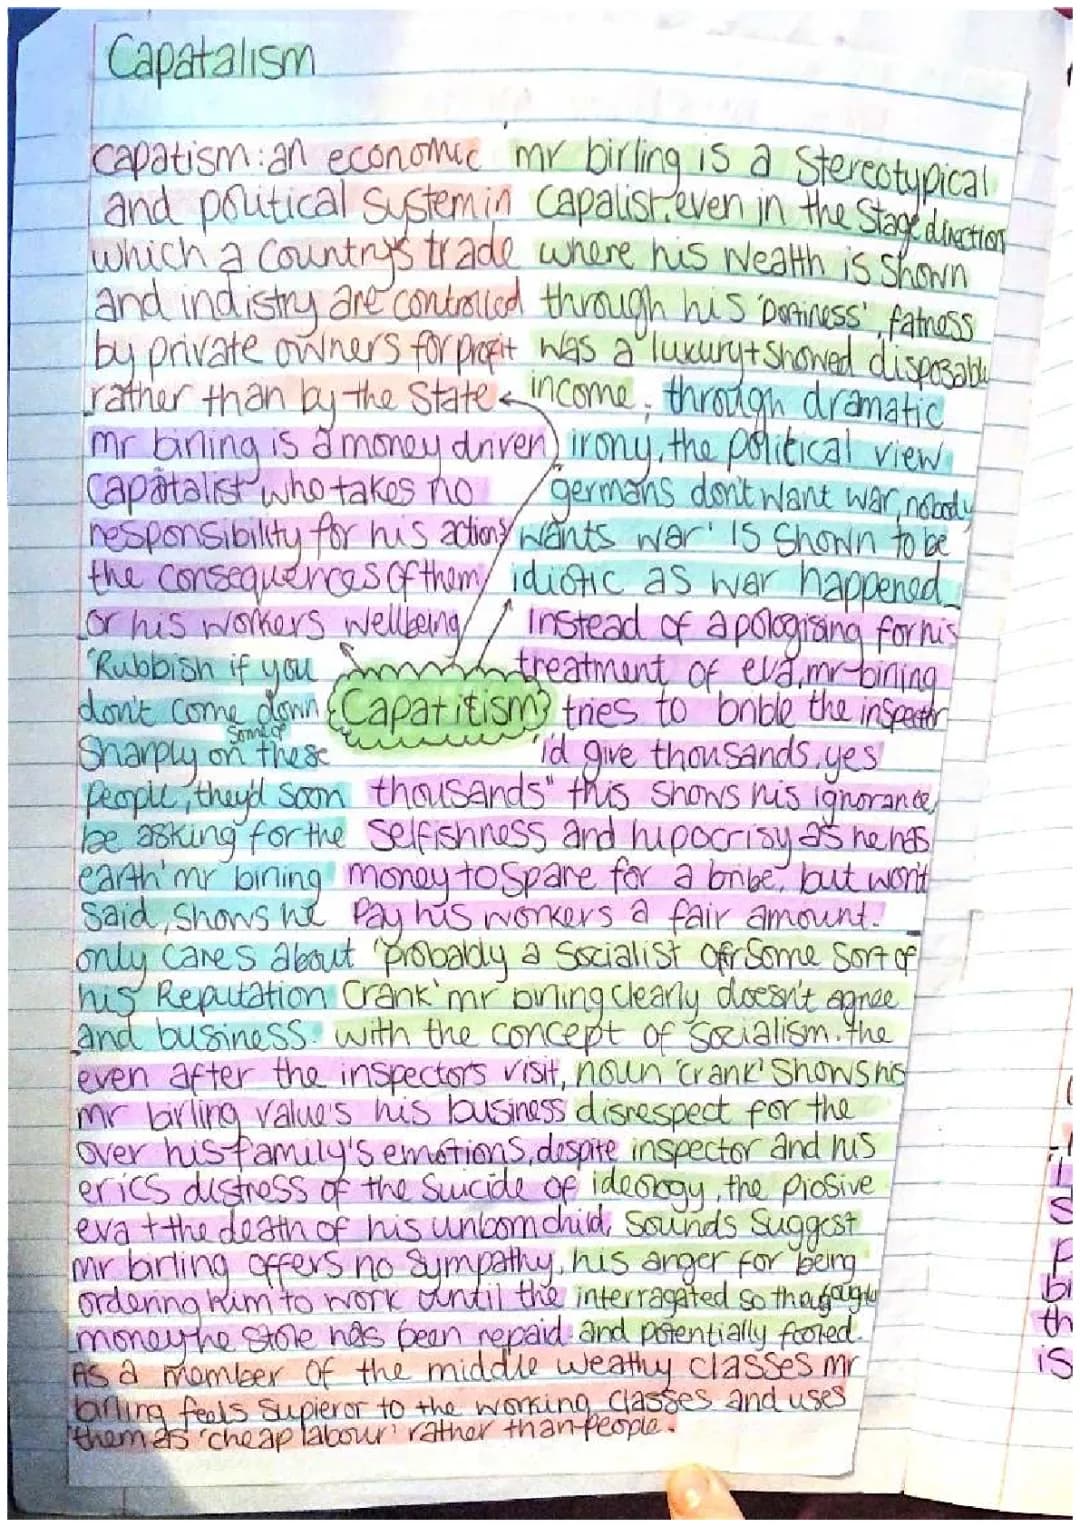 Capatalism
capatism: an economic
and political system in
which a Country's trade
and indistry are controlled
by private owners for profit
rather than by the State
mr birling is a stereotypical
capalist, even in the Stage direction
where his wealth is shown
through his 'portiness', fatness
was a luxury + showed disposable
income.
mr birling is a money driven
Capatalist who takes no
responsibility for his actions
the consequences of them
or his workers wellbeing
through dramatic
irony, the political view
germans don't want war, nobody
wants war' is shown to be
idiotic as war happened
Capatitism
'Rubbish if you
don't come down
Sharply on some of these
people, they'd soon
be asking for the
earth' mr birling
said, shows he
only cares about
his Reputation
and business.
Instead of apologising for his
treatment of eva, mr birling
tries to bribe the inspector
'i'd give thousands, yes
thousands" this shows his ignorance,
selfishness and hipocrisy as he has
money to spare for a bribe, but won't
Pay his workers a fair amount.
'probably a Socialist or some sort of
Crank' mr birling clearly doesn't agree
with the concept of socialism. the
noun 'crank' Shows his
disrespect for the
inspector and his
ideology, the plosive
Sounds suggest
his anger for being
interragated so thouroughly
and potentially fooled.
even after the inspectors visit,
mr birling value's his business
over his family's emotions, despite
erics distress of the suicide of
eva + the death of his unborn child,
mr birling offers no sympathy,
ordering him to work until the
money he stole has been repaid.
As a member of the middle weathy classes mr
birling feels supieror to the working classes and uses
them as 'cheap labour' rather than people.
bi
th
is